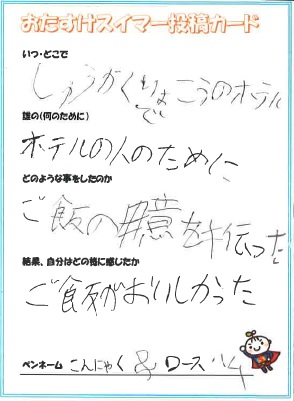 おたすけスイマー投稿カード
いつ・どこで
しゅうがくりょこうのホテル
で
誰の(何のために)
ホテルの人のために
どのような事をしたのか
ご飯の用意を手伝った
結果、自分はどの様に感じたか
ご飯がおいしかった
ペンネーム こんにゃく & ロース